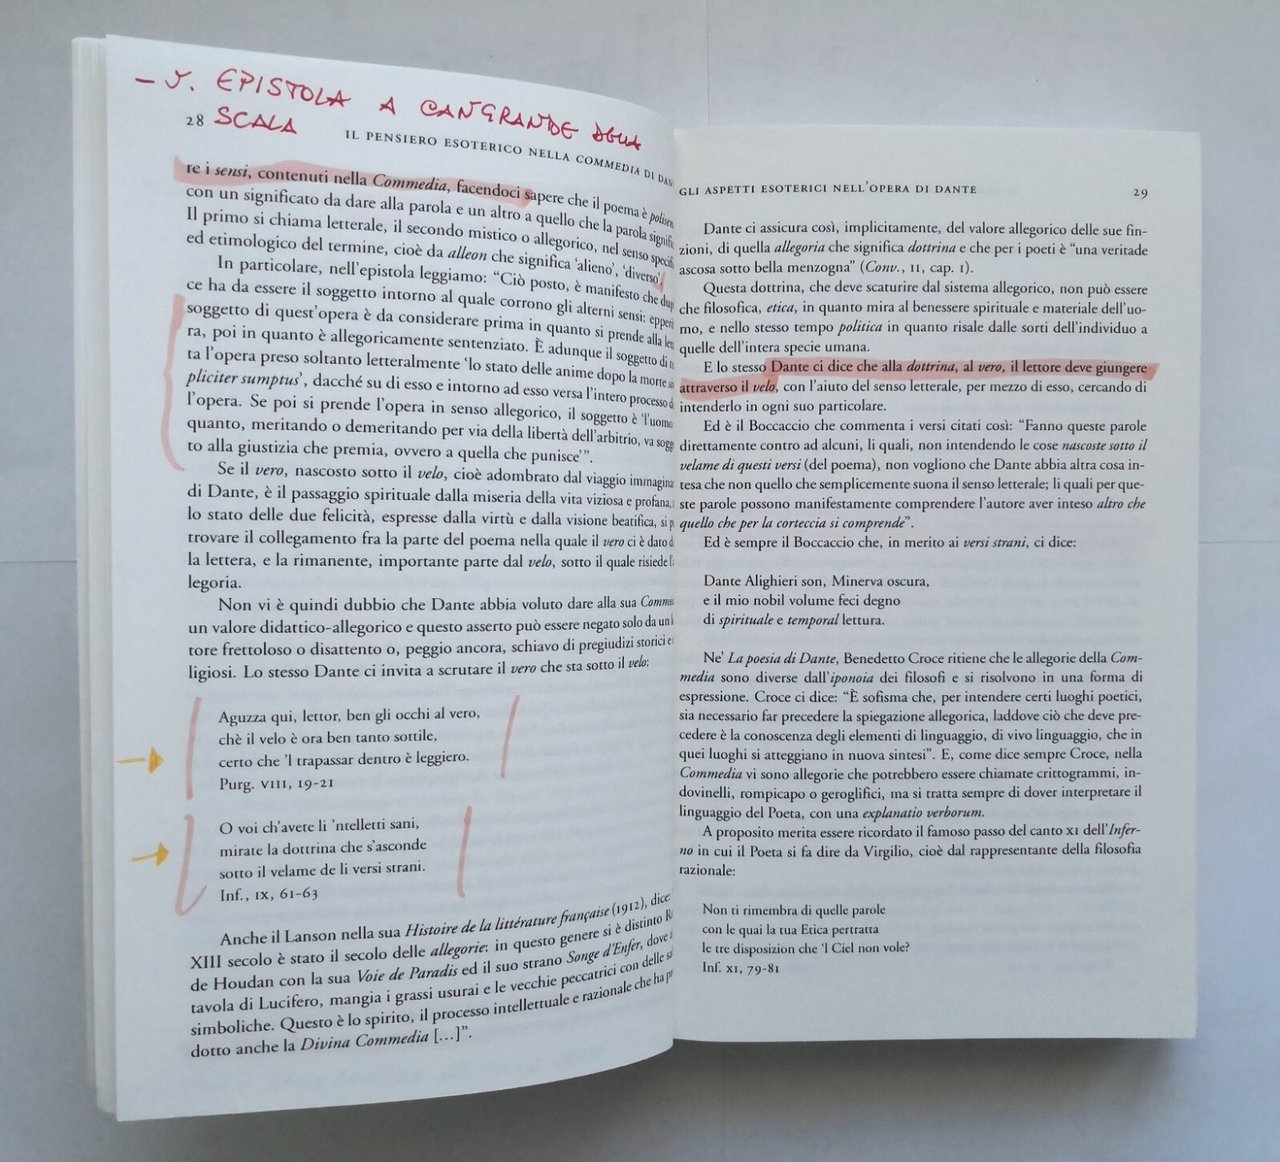 – V. EPISTOLA A CANGRANDE DELLA
SCALA
28
IL PENSIERO ESOTERICO NELLA COMMEDIA DI DAN
re i sensi, contenuti nella Commedia, facendoci sapere che il poema è polisen
con un significato da dare alla parola e un altro a quello che la parola signifi
Il primo si chiama letterale, il secondo mistico o allegorico, nel senso specifi
ed etimologico del termine, cioè da alleon che significa ‘alieno’, ‘diverso’.
In particolare, nell’epistola leggiamo: “Ciò posto, è manifesto che dup
ce ha da essere il soggetto intorno al quale corrono gli alterni sensi: epperi
soggetto di quest’opera è da considerare prima in quanto si prende alla let
ra, poi in quanto è allegoricamente sentenziato. È adunque il soggetto di t
ta l’opera preso soltanto letteralmente ‘lo stato delle anime dopo la morte si
pliciter sumptus’, dacché su di esso e intorno ad esso versa l’intero processo d
l’opera. Se poi si prende l’opera in senso allegorico, il soggetto è ‘l’uomo
quanto, meritando o demeritando per via della libertà dell’arbitrio, va sogg
to alla giustizia che premia, ovvero a quella che punisce’”.
Se il vero, nascosto sotto il velo, cioè adombrato dal viaggio immagina
di Dante, è il passaggio spirituale dalla miseria della vita viziosa e profana,
lo stato delle due felicità, espresse dalla virtù e dalla visione beatifica, si p
trovare il collegamento fra la parte del poema nella quale il vero ci è dato d
la lettera, e la rimanente, importante parte dal velo, sotto il quale risiede l’a
legoria.
Non vi è quindi dubbio che Dante abbia voluto dare alla sua Comm
un valore didattico-allegorico e questo asserto può essere negato solo da un l
tore frettoloso o disattento o, peggio ancora, schiavo di pregiudizi storici e
ligiosi. Lo stesso Dante ci invita a scrutare il vero che sta sotto il velo:
Aguzza qui, lettor, ben gli occhi al vero,
chè il velo è ora ben tanto sottile,
certo che ’l trapassar dentro è leggiero.
Purg. VIII, 19-21
O voi ch’avete li ’ntelletti sani,
mirate la dottrina che s’asconde
sotto il velame de li versi strani.
Inf., IX, 61-63
Anche il Lanson nella sua Histoire de la littérature française (1912), dice:
XIII secolo è stato il secolo delle allegorie: in questo genere si è distinto R
de Houdan con la sua Voie de Paradis ed il suo strano Songe d’Enfer, dove a
tavola di Lucifero, mangia i grassi usurai e le vecchie peccatrici con delle sa
simboliche. Questo è lo spirito, il processo intellettuale e razionale che ha p
dotto anche la Divina Commedia [...]”.
GLI ASPETTI ESOTERICI NELL’OPERA DI DANTE
29
Dante ci assicura così, implicitamente, del valore allegorico delle sue fin-
zioni, di quella allegoria che significa dottrina e che per i poeti è “una veritade
ascosa sotto bella menzogna” (Conv., II, cap. I).
Questa dottrina, che deve scaturire dal sistema allegorico, non può essere
che filosofica, etica, in quanto mira al benessere spirituale e materiale dell’uo-
mo, e nello stesso tempo politica in quanto risale dalle sorti dell’individuo a
quelle dell’intera specie umana.
E lo stesso Dante ci dice che alla dottrina, al vero, il lettore deve giungere
attraverso il velo, con l’aiuto del senso letterale, per mezzo di esso, cercando di
intenderlo in ogni suo particolare.
Ed è il Boccaccio che commenta i versi citati così: “Fanno queste parole
direttamente contro ad alcuni, li quali, non intendendo le cose nascoste sotto il
velame di questi versi (del poema), non vogliono che Dante abbia altra cosa in-
tesa che non quello che semplicemente suona il senso letterale; li quali per que-
ste parole possono manifestamente comprendere l’autore aver inteso altro che
quello che per la corteccia si comprende”.
Ed è sempre il Boccaccio che, in merito ai versi strani, ci dice:
Dante Alighieri son, Minerva oscura,
e il mio nobil volume feci degno
di spirituale e temporal lettura.
Ne’ La poesia di Dante, Benedetto Croce ritiene che le allegorie della Com-
media sono diverse dall’iponoia dei filosofi e si risolvono in una forma di
espressione. Croce ci dice: “È sofisma che, per intendere certi luoghi poetici,
sia necessario far precedere la spiegazione allegorica, laddove ciò che deve pre-
cedere è la conoscenza degli elementi di linguaggio, di vivo linguaggio, che in
quei luoghi si atteggiano in nuova sintesi”. E, come dice sempre Croce, nella
Commedia vi sono allegorie che potrebbero essere chiamate crittogrammi, in-
dovinelli, rompicapo o geroglifici, ma si tratta sempre di dover interpretare il
linguaggio del Poeta, con una explanatio verborum.
A proposito merita essere ricordato il famoso passo del canto XI dell’Infer-
no in cui il Poeta si fa dire da Virgilio, cioè dal rappresentante della filosofia
razionale:
Non ti rimembra di quelle parole
con le quai la tua Etica pertratta
le tre disposizion che ‘l Ciel non vole?
Inf. XI, 79-81